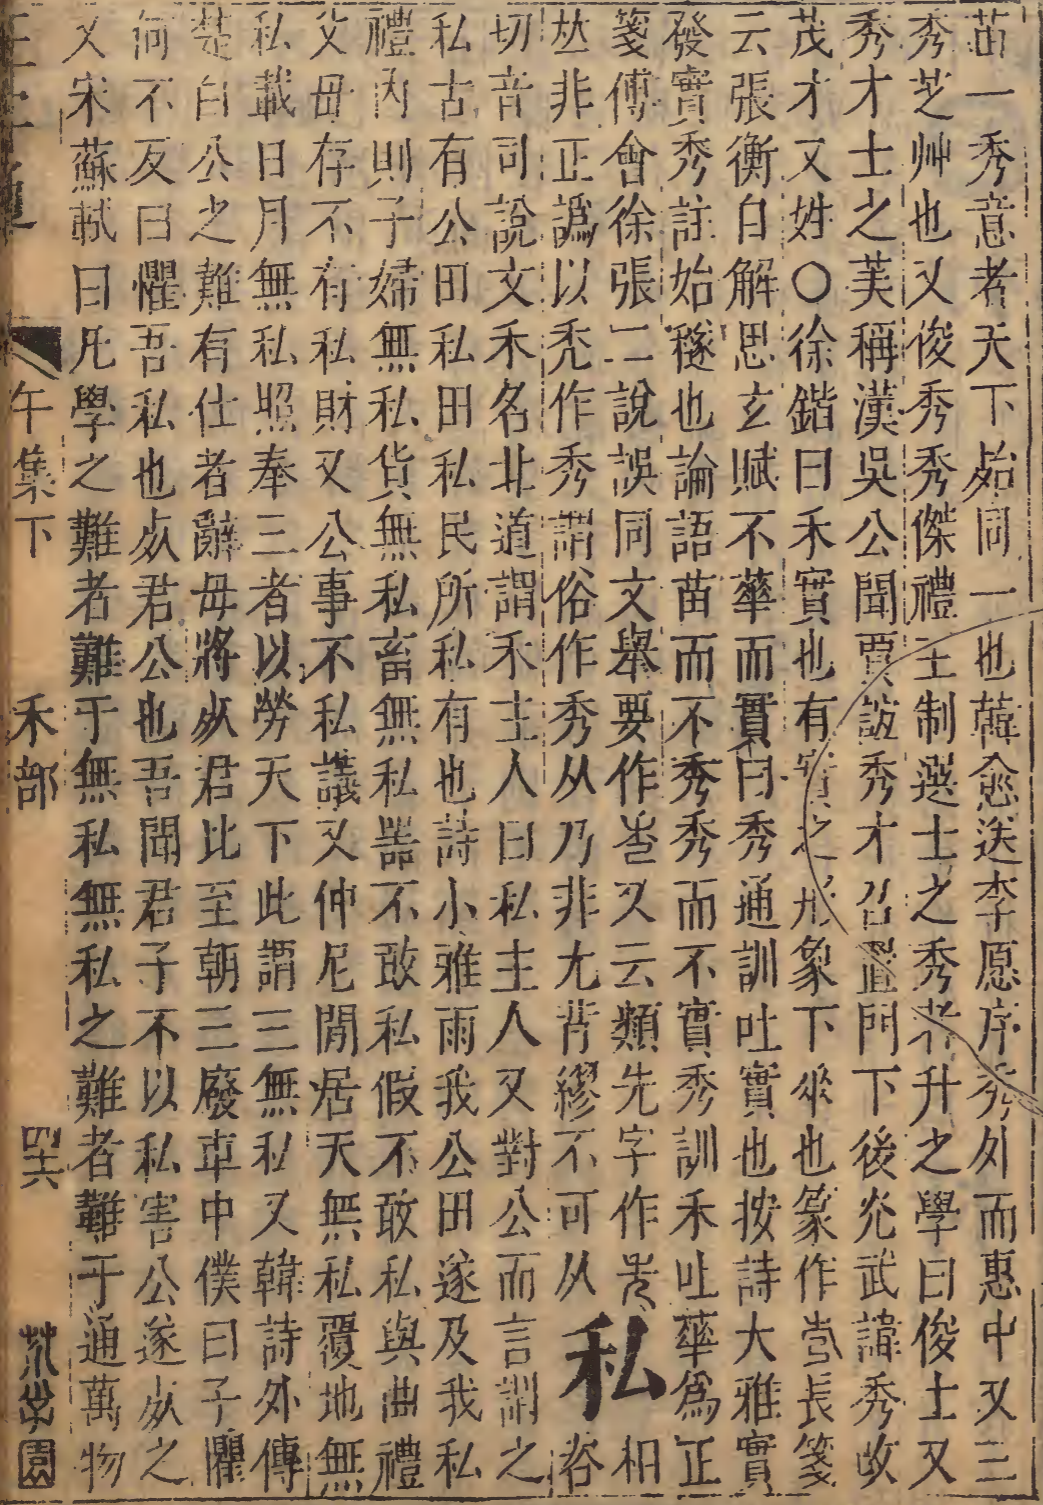 茁一秀意者天下始同一也韓愈送李愿序秀外而惠中又三
秀芝艸也又俊秀秀傑禮王制選士之秀者升之學曰俊士又
秀才士之美稱漢吳公聞賈誼秀才召置門下後光武諱秀改
茂才又姓○徐鍇曰禾實也有實之形象下垂也篆作𠧟長箋
云張衡自解思玄賦不華而實曰秀通訓吐實也按詩大雅實
發實秀註始穟也論語苗而不秀秀而不實秀訓禾吐華爲正
箋傅會徐張二說誤同文舉要作𡴆又云類先字作𠒇
𠀤非正譌以禿作秀謂俗作秀从乃非尤背繆不可从 私 相咨
切音司說文禾名北道謂禾主人曰私主人又對公而言謂之
私古有公田私田私民所私有也詩小雅雨我公田遂及我私
禮內則子婦無私貨無私畜無私器不敢私假不敢私與曲禮
父母存不有私財又公事不私議又仲尼閒居天無私覆地無
私載日月無私照奉三者以勞天下此謂三無私又韓詩外傳
楚白公之難有仕者辭母將死君比至朝三廢車中僕曰子懼
何不反曰懼吾私也死君公也吾聞君子不以私害公遂死之
又宋蘇軾曰凡學之難者難于無私無私之難者難于通萬物
午集下 禾部 四六